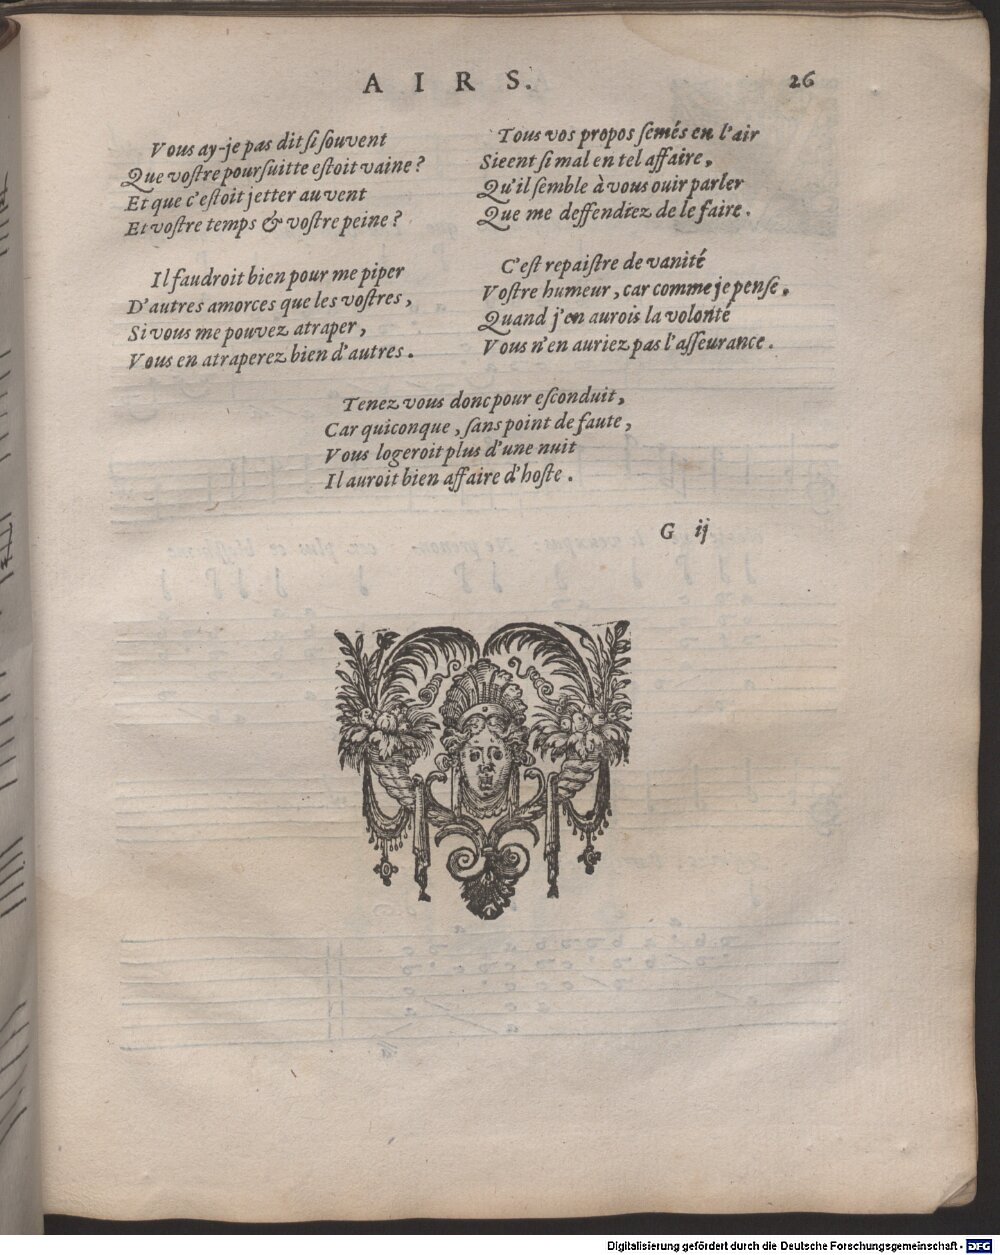 AIRS.
26
Vous ay-je pas dit si souvent
Que vostre poursuitte estoit vaine?
Et que c'estoit jetter au vent
Et vostre temps & vostre peine?
Il faudroit bien pour me piper
D'autres amorces que les vostres,
Si vous me pouvez atraper,
Vous en atraperez bien d'autres.
Tous vos propos semés en l'air
Sieent si mal en tel affaire,
Qu'il semble à vous ouir parler
Que me deffendiez de le faire.
C'est repaistre de vanité
Vostre humeur, car comme je pense,
Quand j'en aurois la volonté
Vous n'en auriez pas l'asseurance.
Tenez vous donc pour esconduit,
Car quiconque, sans point de faute,
Vous logeroit plus d'une nuit
Il auroit bien affaire d'hoste.
G ij
Digitalisierung gefördert durch die Deutsche Forschungsgemeinschaft - DFG